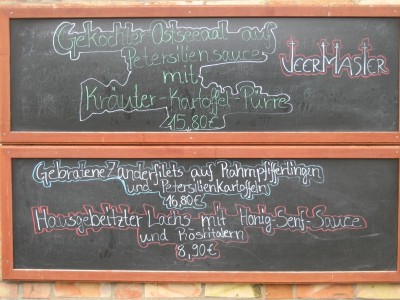 Gekochter Ostseeaal auf
Petersiliensauce
mit
Kräuter-Kartoffel-Pürre
15,80€
JEERMASTER
Gebratene Zanderfilets auf Rahmpfifferlingen
und Petersilienkartoffeln
16,80€
Hausgebeitzter Lachs mit Honig-Senf-Sauce
und Röstitalern
8,90€